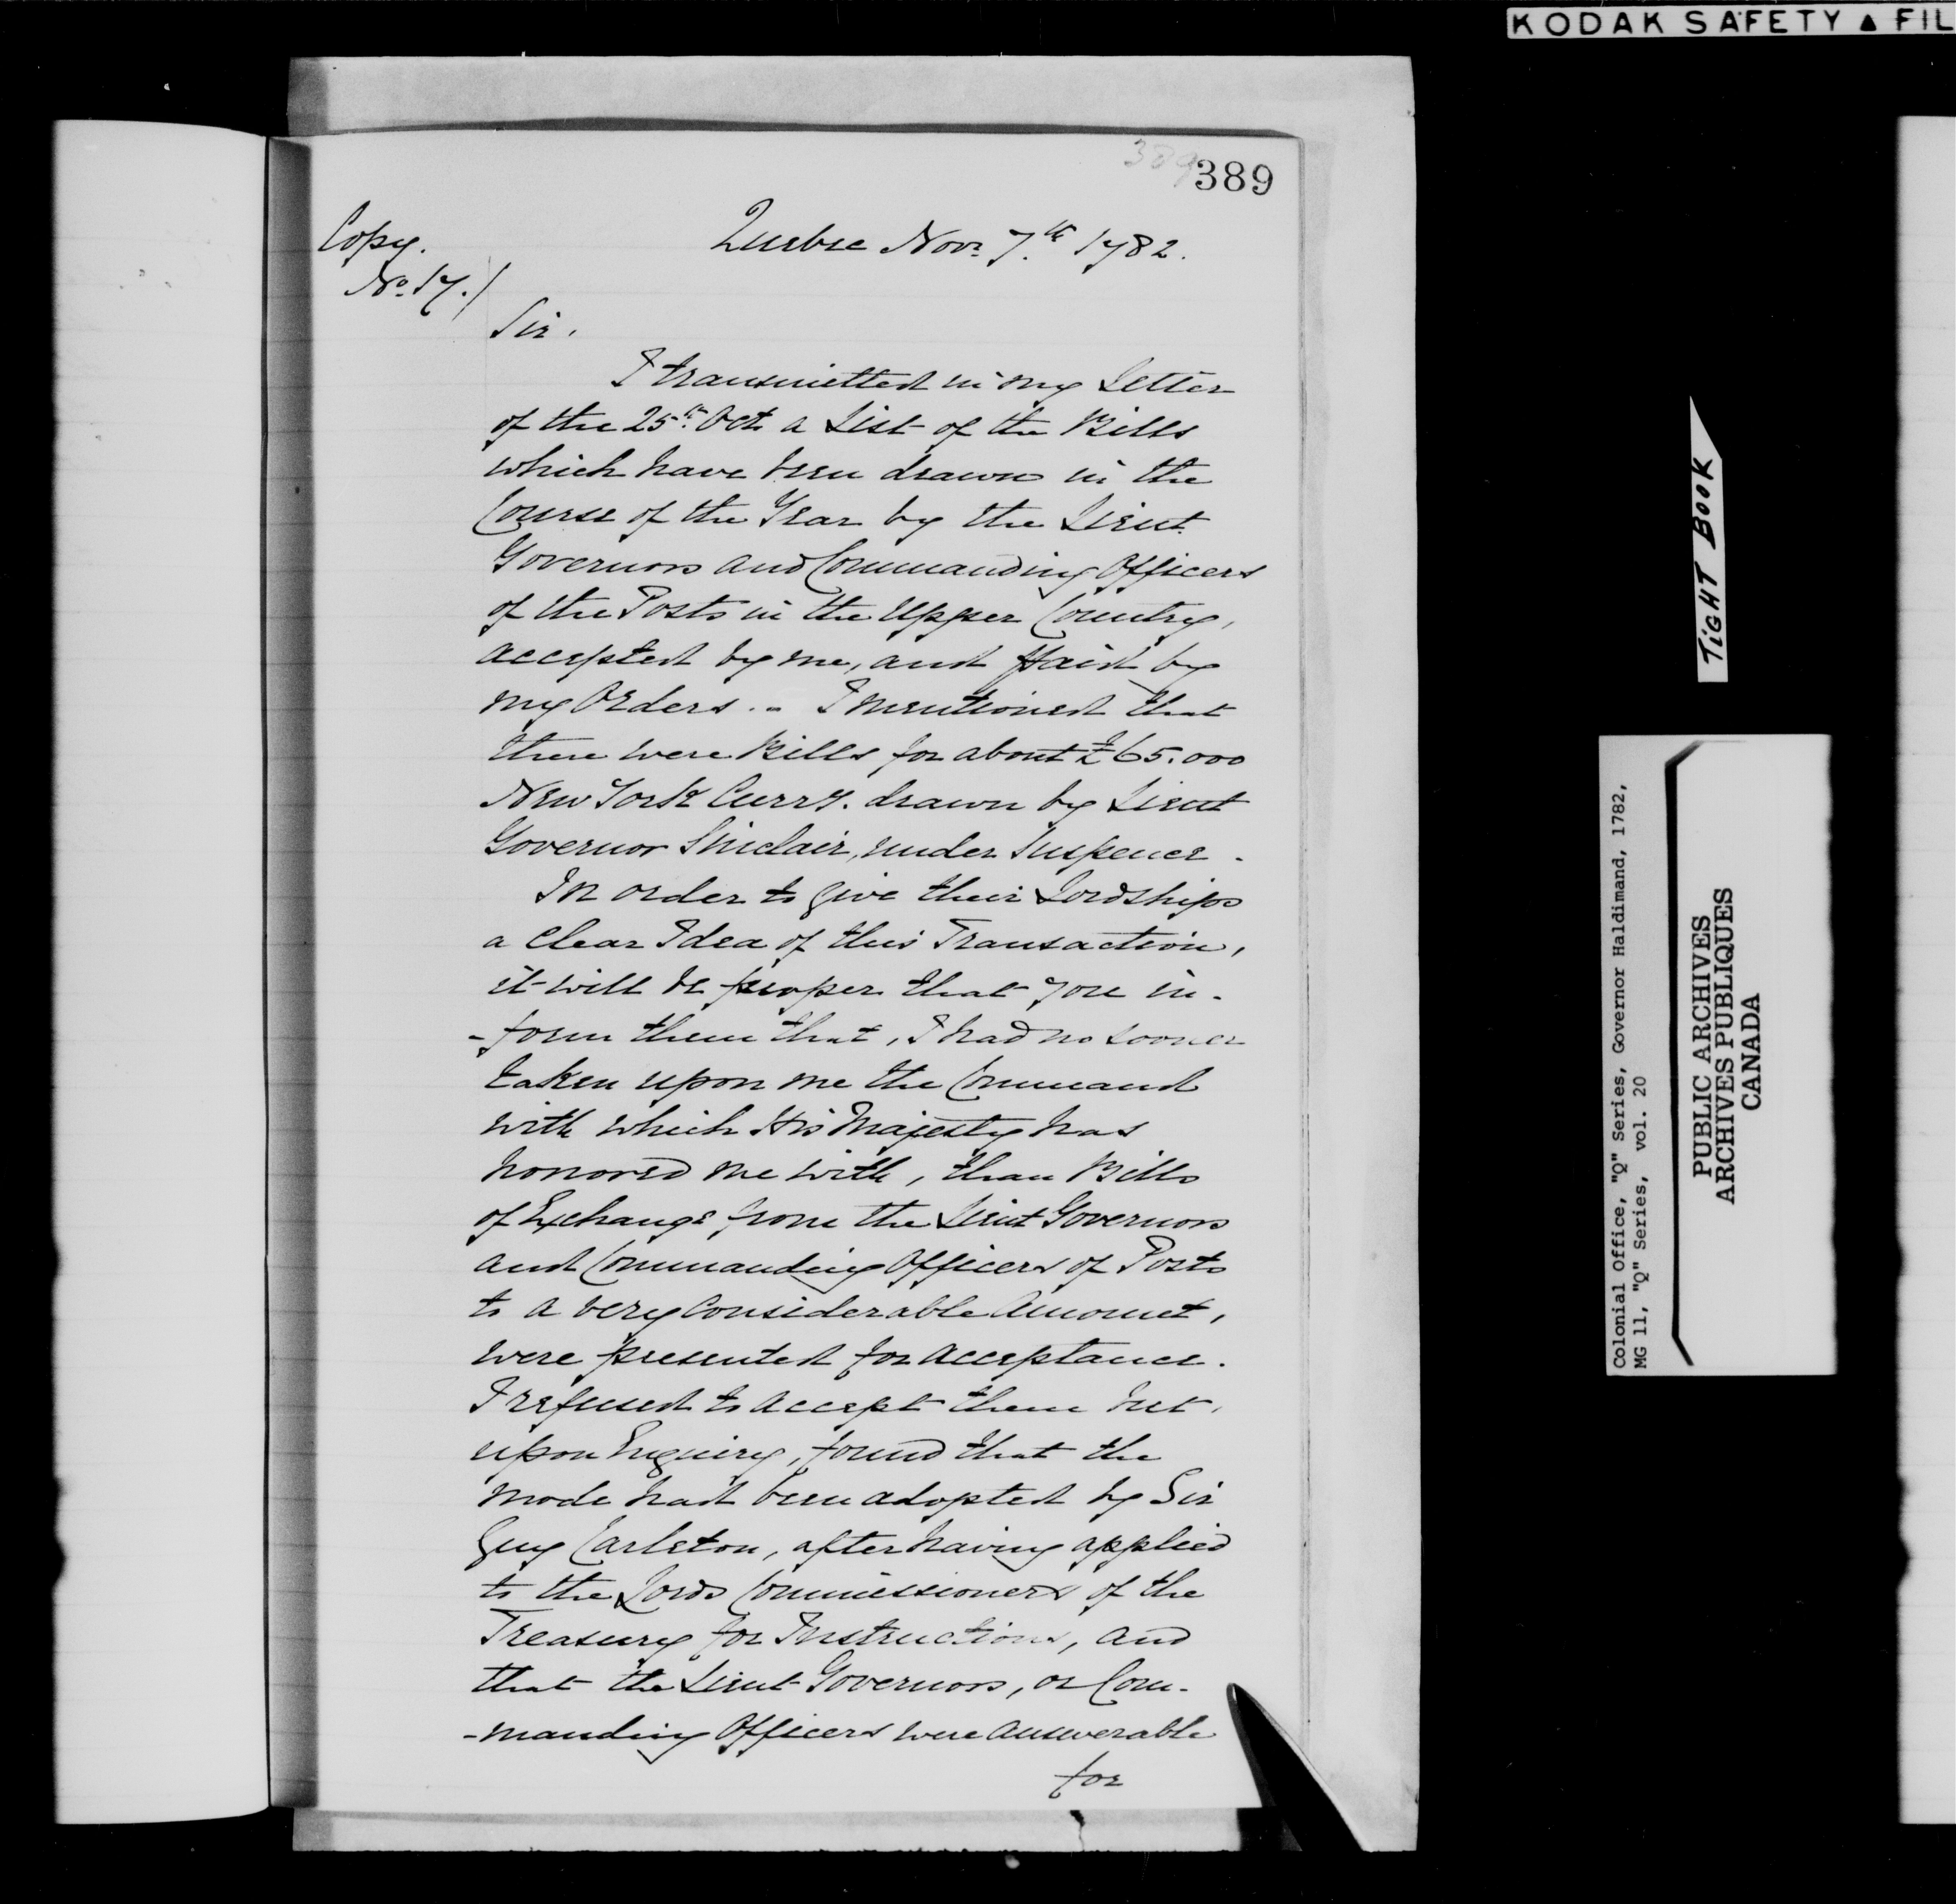 KODAK SAFETY ▲ FIL
389
389
Copy.
No. 17.
Quebec Novr. 7.th 1782.
Sir.
I transmitted in my Letter
of the 25.th Octr. a List of the Bills
which have been drawn in the
Course of the Year by the Lieut.
Governors and Commanding Officers
of the Posts in the Upper Country,
accepted by me, and Paid by
my Orders. - I mentioned that
there were Bills for about £65.000
New York Curry. drawn by Lieut
Governor Sinclair, under Suspence.
In order to give their Lordships
a clear Idea of this Transaction,
it will be proper that you in-
-form them that, I had no sooner
taken upon me the Command
with which His Majesty has
honored me with, than Bills
of Exchange from the Lieut Governors
and Commanding Officers of Posts
to a very considerable Amount,
were presented for acceptance.
I refused to accept them but,
upon Enquiry, found that the
mode had been adopted by Sir
Guy Carleton, after having applied
to the Lords Commissioners of the
Treasury for Instructions, and
that the Lieut Governors, or Com-
-manding Officers were answerable
for
TIGHT BOOK
Colonial Office, "Q" Series, Governor Haldimand, 1782,
MG 11, "Q" Series, vol. 20
PUBLIC ARCHIVES
ARCHIVES PUBLIQUES
CANADA